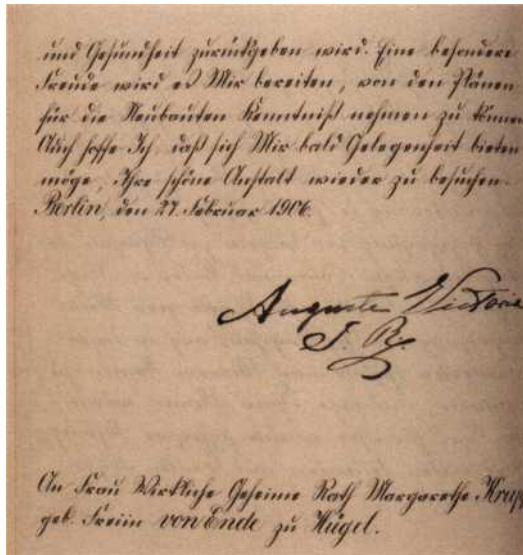 und Gesundheit zurückgeben wird. Eine besondere
Freude wird es Mir bereiten, von den Plänen
für die Neubauten Kenntniß nehmen zu können
Auch hoffe Ich, daß sich Mir bald Gelegenheit bieten
möge, Ihre schöne Anstalt wieder zu besuchen.
Berlin, den 27. Februar 1906.
Auguste Victoria
I. R.
An Frau Wirkliche Geheime Rath Margarethe Krupp
geb. Freiin von Ende zu Hügel.